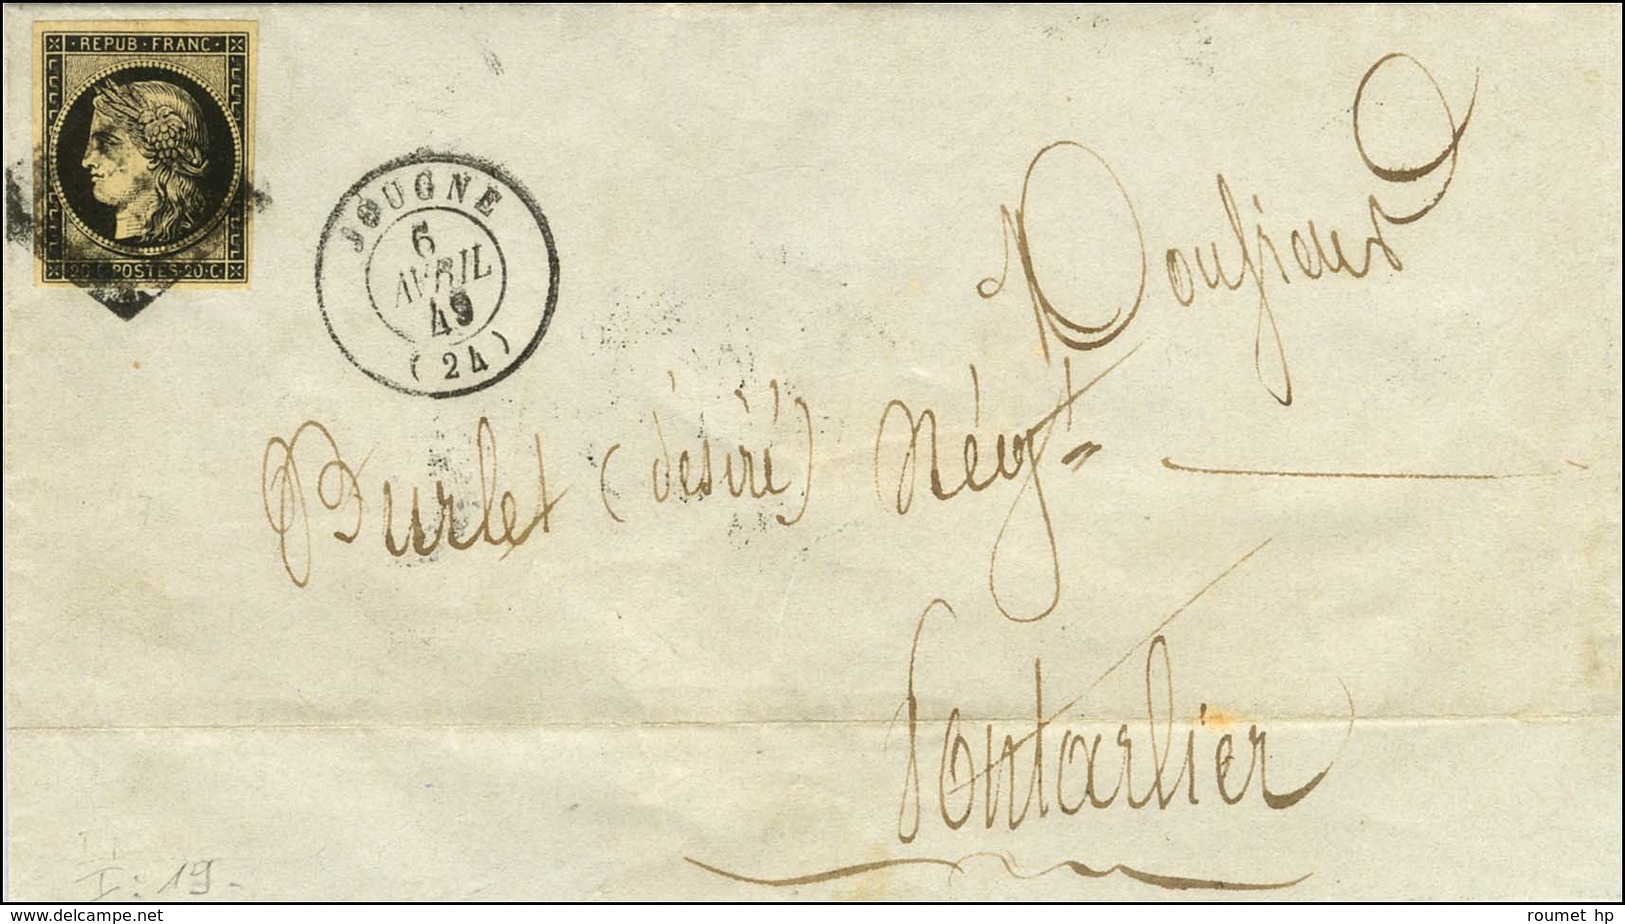 REPUB · FRANC ·
20 · C · POSTES · 20 · C ·
JOUGNE
6
AVRIL
49
(24)
Monsieur
Burlet (désiré) Négt
Pontarlier
I : 19 -
www.delcampe.net
roumet hp